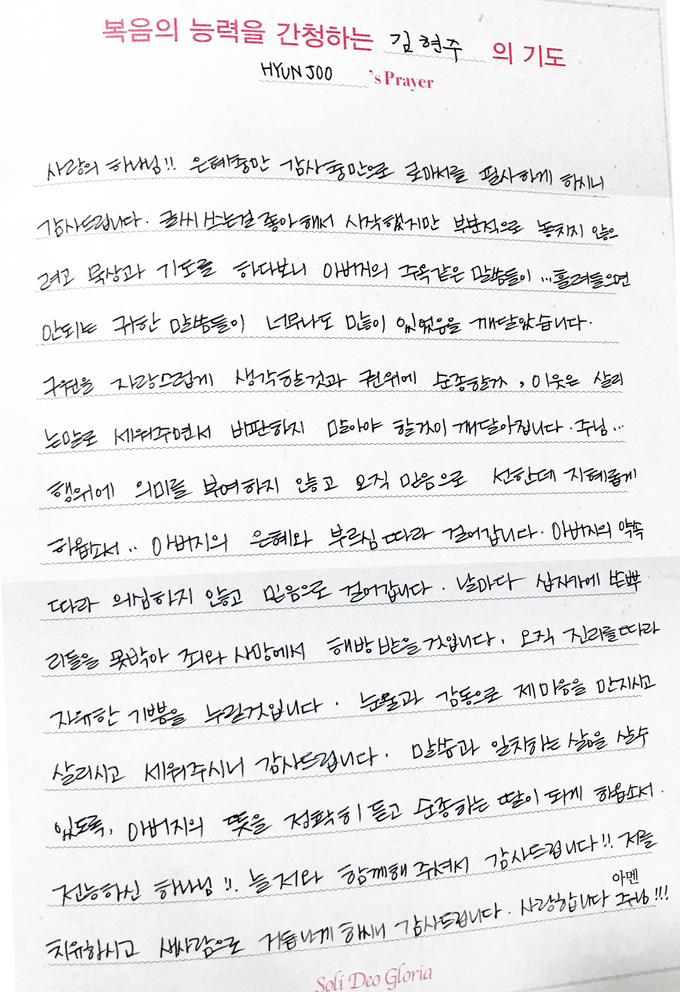 복음의 능력을 간청하는 김현주 의 기도
HYUNJOO 's Prayer
사랑의 하나님!! 은혜충만 감사충만으로 로마서를 필사하게 하시니
감사드립니다. 글씨 쓰는걸 좋아해서 시작했지만 부분적으로 놓치지 않으
려고 묵상과 기도를 하다보니 아버지의 주옥같은 말씀들이 ... 흘려들으면
안되는 귀한 말씀들이 너무나도 많이 있었음을 깨달았습니다.
구원을 자랑스럽게 생각할것과 권위에 순종할것, 이웃은 살리
는말로 세워주면서 비판하지 말아야 할것이 깨달아집니다. 주님...
행위에 의미를 부여하지 않고 오직 믿음으로 선한데 지혜롭게
하옵소서.. 아버지의 은혜와 부르심 따라 걸어갑니다. 아버지의 약속
따라 의심하지 않고 믿음으로 걸어갑니다. 날마다 십자가에 쓴뿌
리들을 못박아 죄와 사망에서 해방받을것입니다. 오직 진리를따라
자유한 기쁨을 누릴것입니다. 눈물과 감동으로 제마음을 만지시고
살리시고 세워주시니 감사드립니다. 말씀과 일치하는 삶을 살수
있도록, 아버지의 뜻을 정확히 듣고 순종하는 딸이 되게 하옵소서.
전능하신 하나님!!. 늘 저와 함께해 주셔서 감사드립니다!!. 저를
치유하시고 새사람으로 거듭나게 하시니 감사드립니다. 사랑합니다 주님!!!
아멘
Soli Deo Gloria